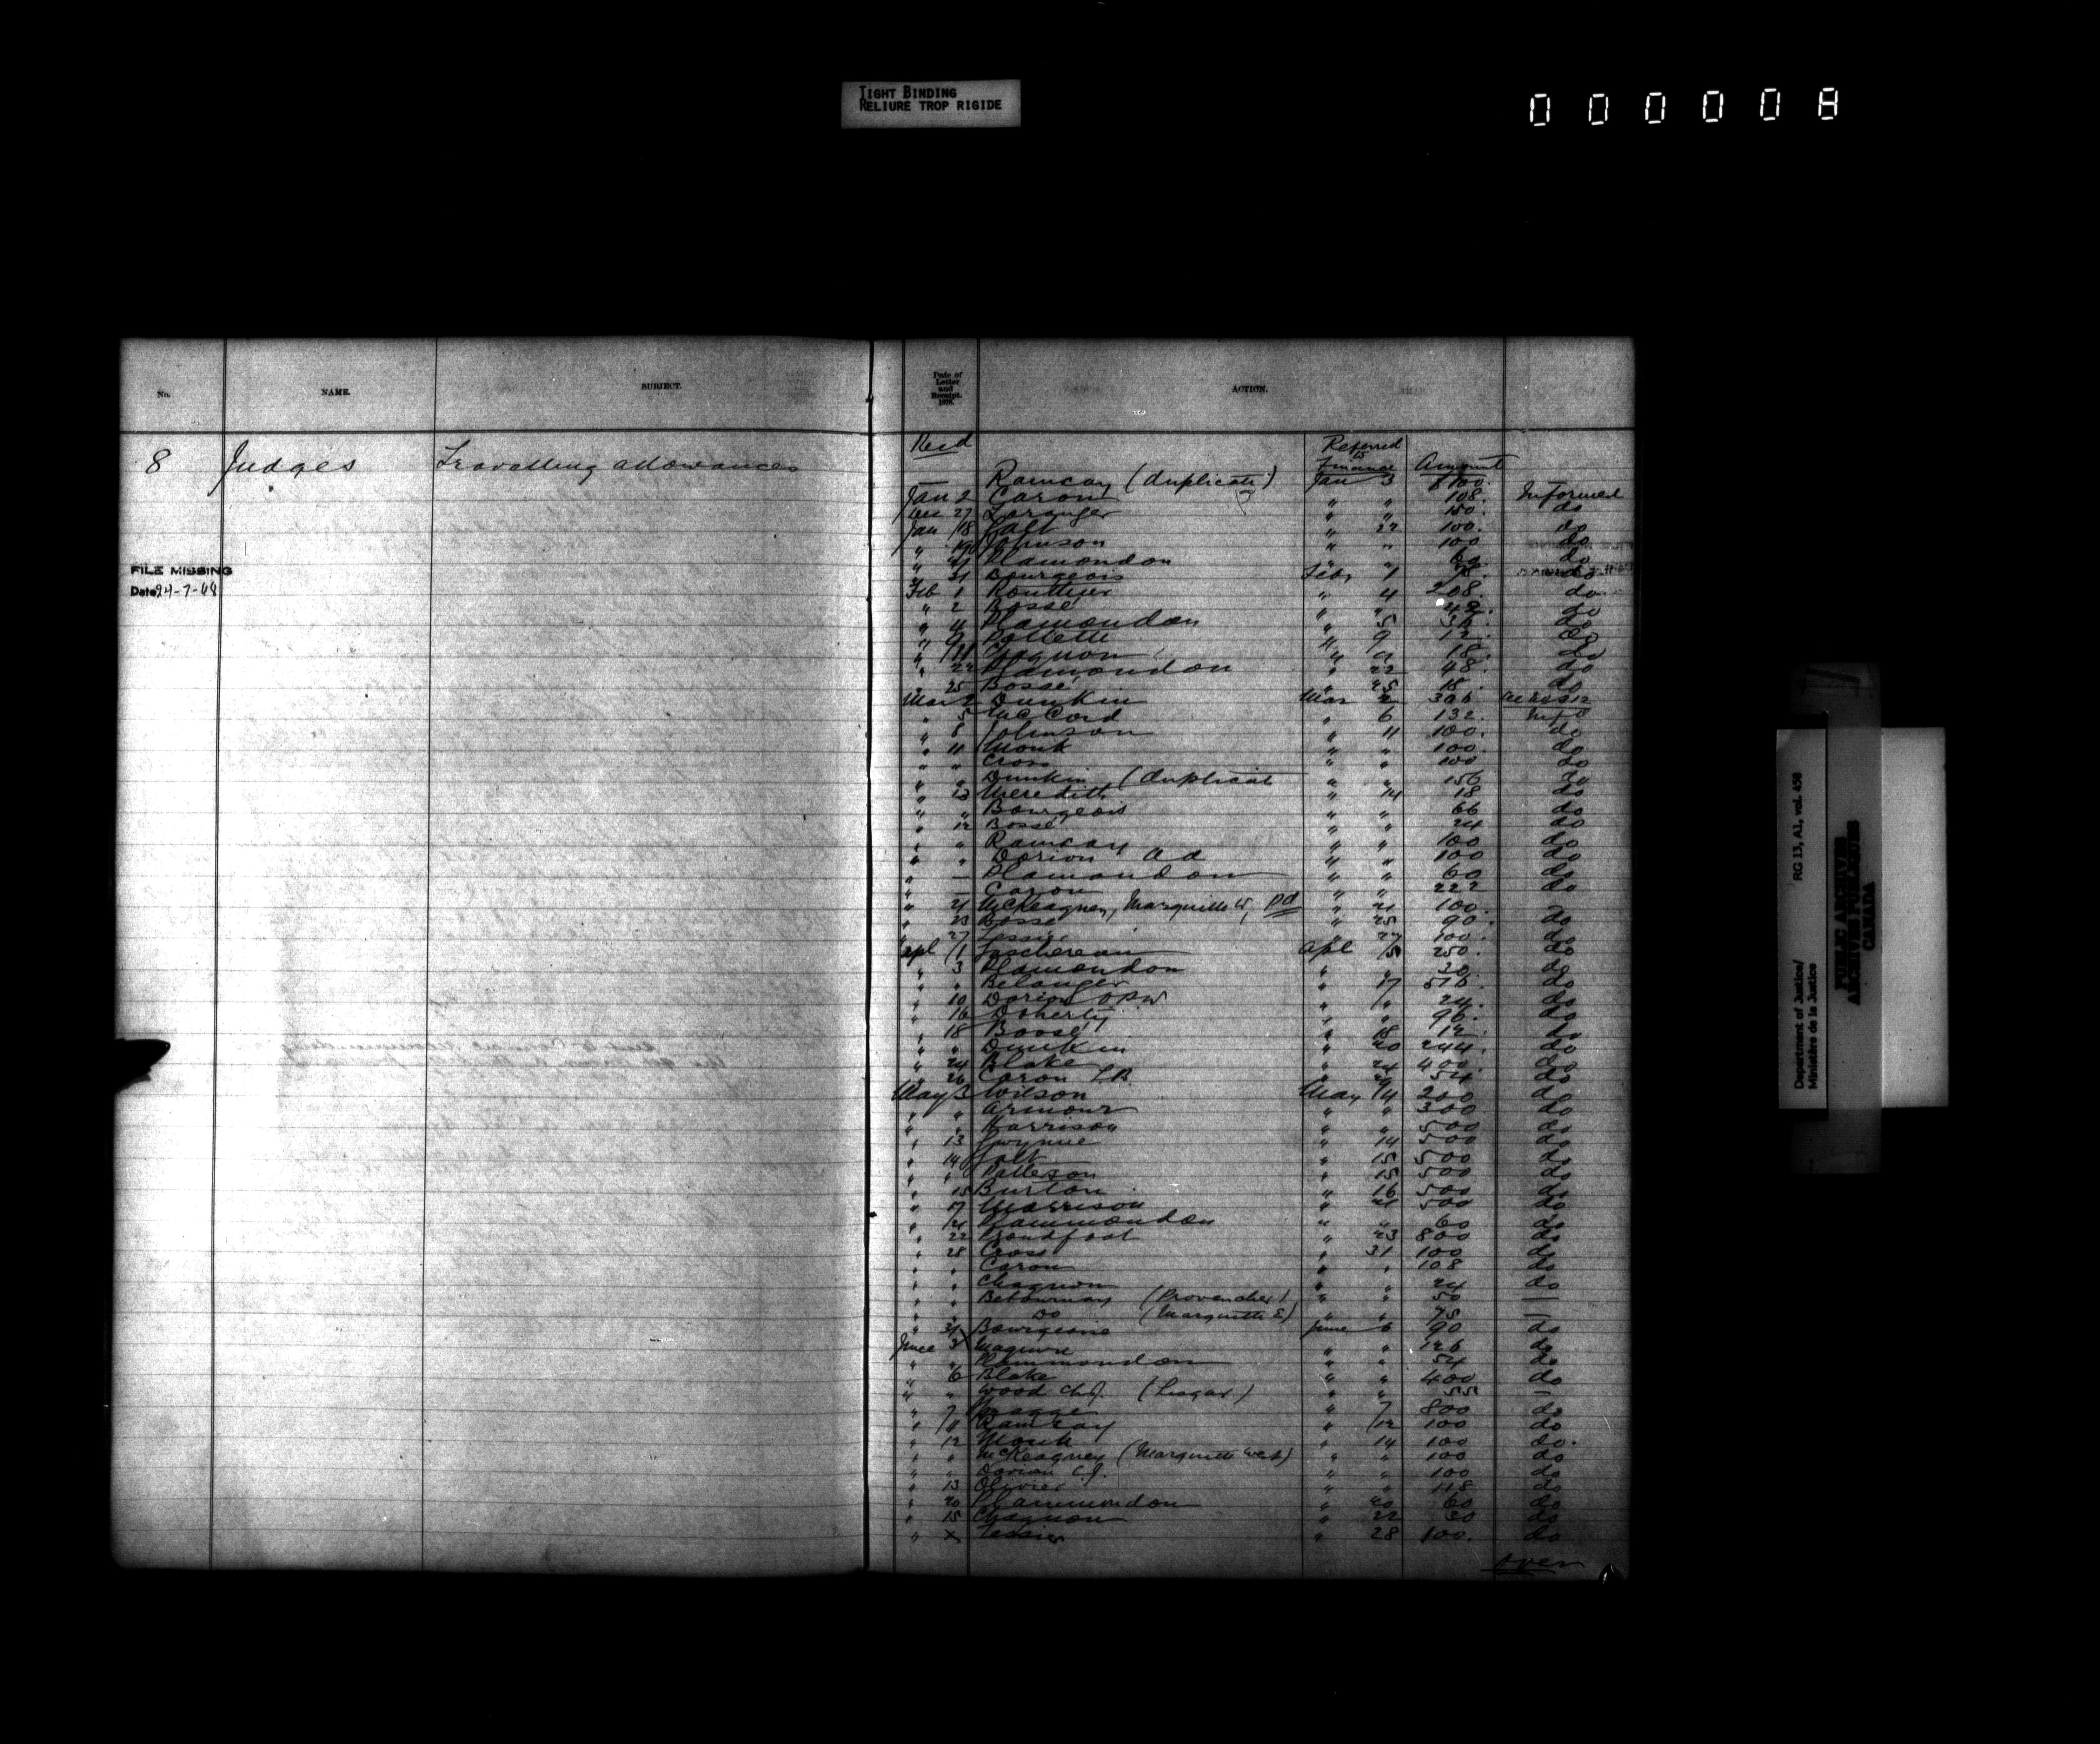 TIGHT BINDING
RELIURE TROP RIGIDE
000008
No. NAME. SUBJECT.
8 Judges Travelling allowances
FILE MISSING
Date 24-7-64
Date of
Letter
and
Receipt.
1878.
ACTION.
Recd Referred
to
Finance Amount
— Ramsay (duplicate) Jan 3 $100.
Jan 2 Caron " " 108. Informed
Dec 27 Loranger " " 150. do
Jan 18 Galt " 22 100. do
" 19 Johnson " " 100 do
" Plamondon " " 60 do
" 31 Bourgeois Feby 1 do
Feb 1 Routhier " 4 208. do
" 2 Bossé " " 42. do
" 4 Plamondon " 5 36. do
" 9 " 9 12. do
" 11 " " 18. do
" 22 Plamondon " 22 48. do
" 25 Bossé " 25 18. do
Mar 2 Dunkin Mar 2 306
" 5 McCord " 6 132. Infd
" 8 Johnson " 11 100. do
" 11 Monk " " 100. do
" " Cross " " 100 do
" " Dunkin (duplicate " " 156 do
" 13 Meredith " 14 18 do
" " Bourgeois " " 66 do
" 12 Bossé " " 24 do
" " Ramsay " " 100 do
" " Dorion A A " " 100 do
" — Plamondon " " 60 do
" — Caron " " 222 do
" 21 McKeagney, Marquette W, pd " 21 100.
" 23 Bossé " 25 90. do
" 27 Tessier " 27 100. do
Apl 1 Taschereau Apl 5 250. do
" 3 Plamondon " " 30. do
" " Belanger " 17 516. do
" 10 Dorion " " 24. do
" 16 Doherty " " 96. do
" 18 Bossé " 18 12. do
" " Dunkin " 20 244. do
" 24 Blake " 24 400. do
" 26 Caron LB " " 54 do
May 3 Wilson May 4 200 do
" " Armour " " 300 do
" " Harrison " " 500 do
" 13 Gwynne " 14 500 do
" 14 Galt " 15 500 do
" " Patteson " 15 500 do
" 15 Burton " 16 500 do
" 17 Morrison " 21 500 do
" 21 Plammondon " " 60 do
" 22 Proudfoot " 23 800 do
" 28 Cross " 31 100 do
" " Caron " " 108 do
" " Chagnon " " 24 do
" " Betournay (Provencher) " " 50 —
" " Do (Marquette E) " " 75 —
" 31 Bourgeois June 6 90 do
June 3 Maguire " " 126 do
" " Plammondon " " 54 do
" 6 Blake " " 400 do
" " Wood Ch J. (Lisgar) " " 55 —
" 7 Spragge " 7 800 do
" 11 Ramsay " 12 100 do
" 12 Monk " 14 100 do.
" " McKeagney (Marquette West) " " 100 do
" " Dorion C.J. " " 100 do
" 13 Olivier " " 118 do
" 20 Plammondon " 20 60 do
" 15 Chagnon " 22 30 do
" x Tessier " 28 100. do
Over
Department of Justice/
Ministère de la Justice
RG 13, A1, vol. 458
PUBLIC ARCHIVES
ARCHIVES PUBLIQUES
CANADA